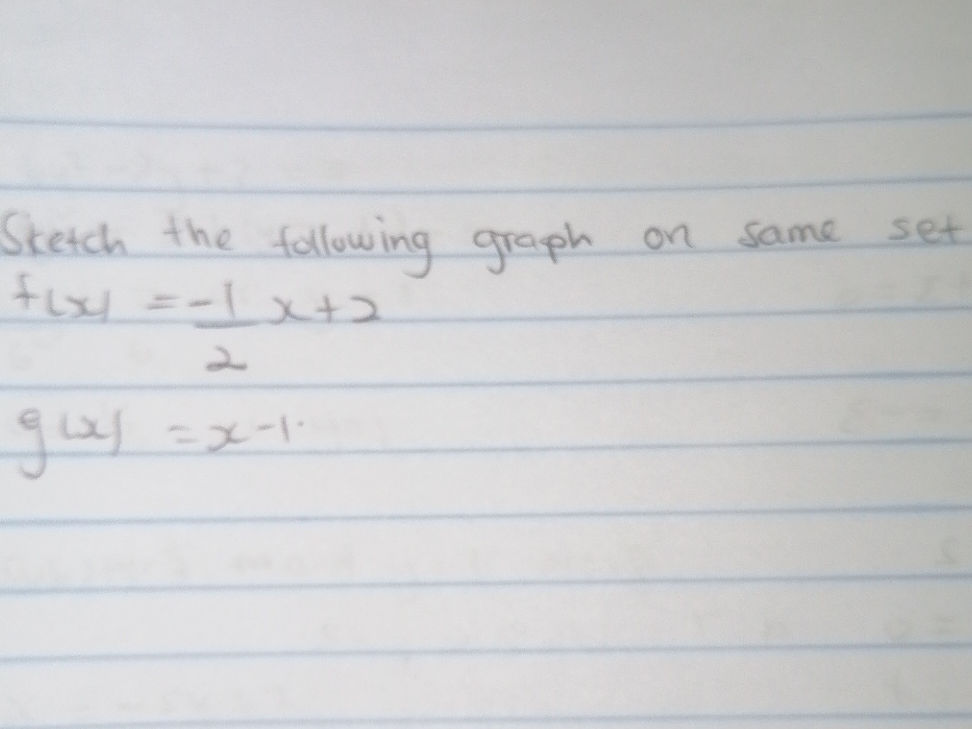 Sketch the following graph on same set
f(x) = -1/2 x+2
g(x) = x-1.